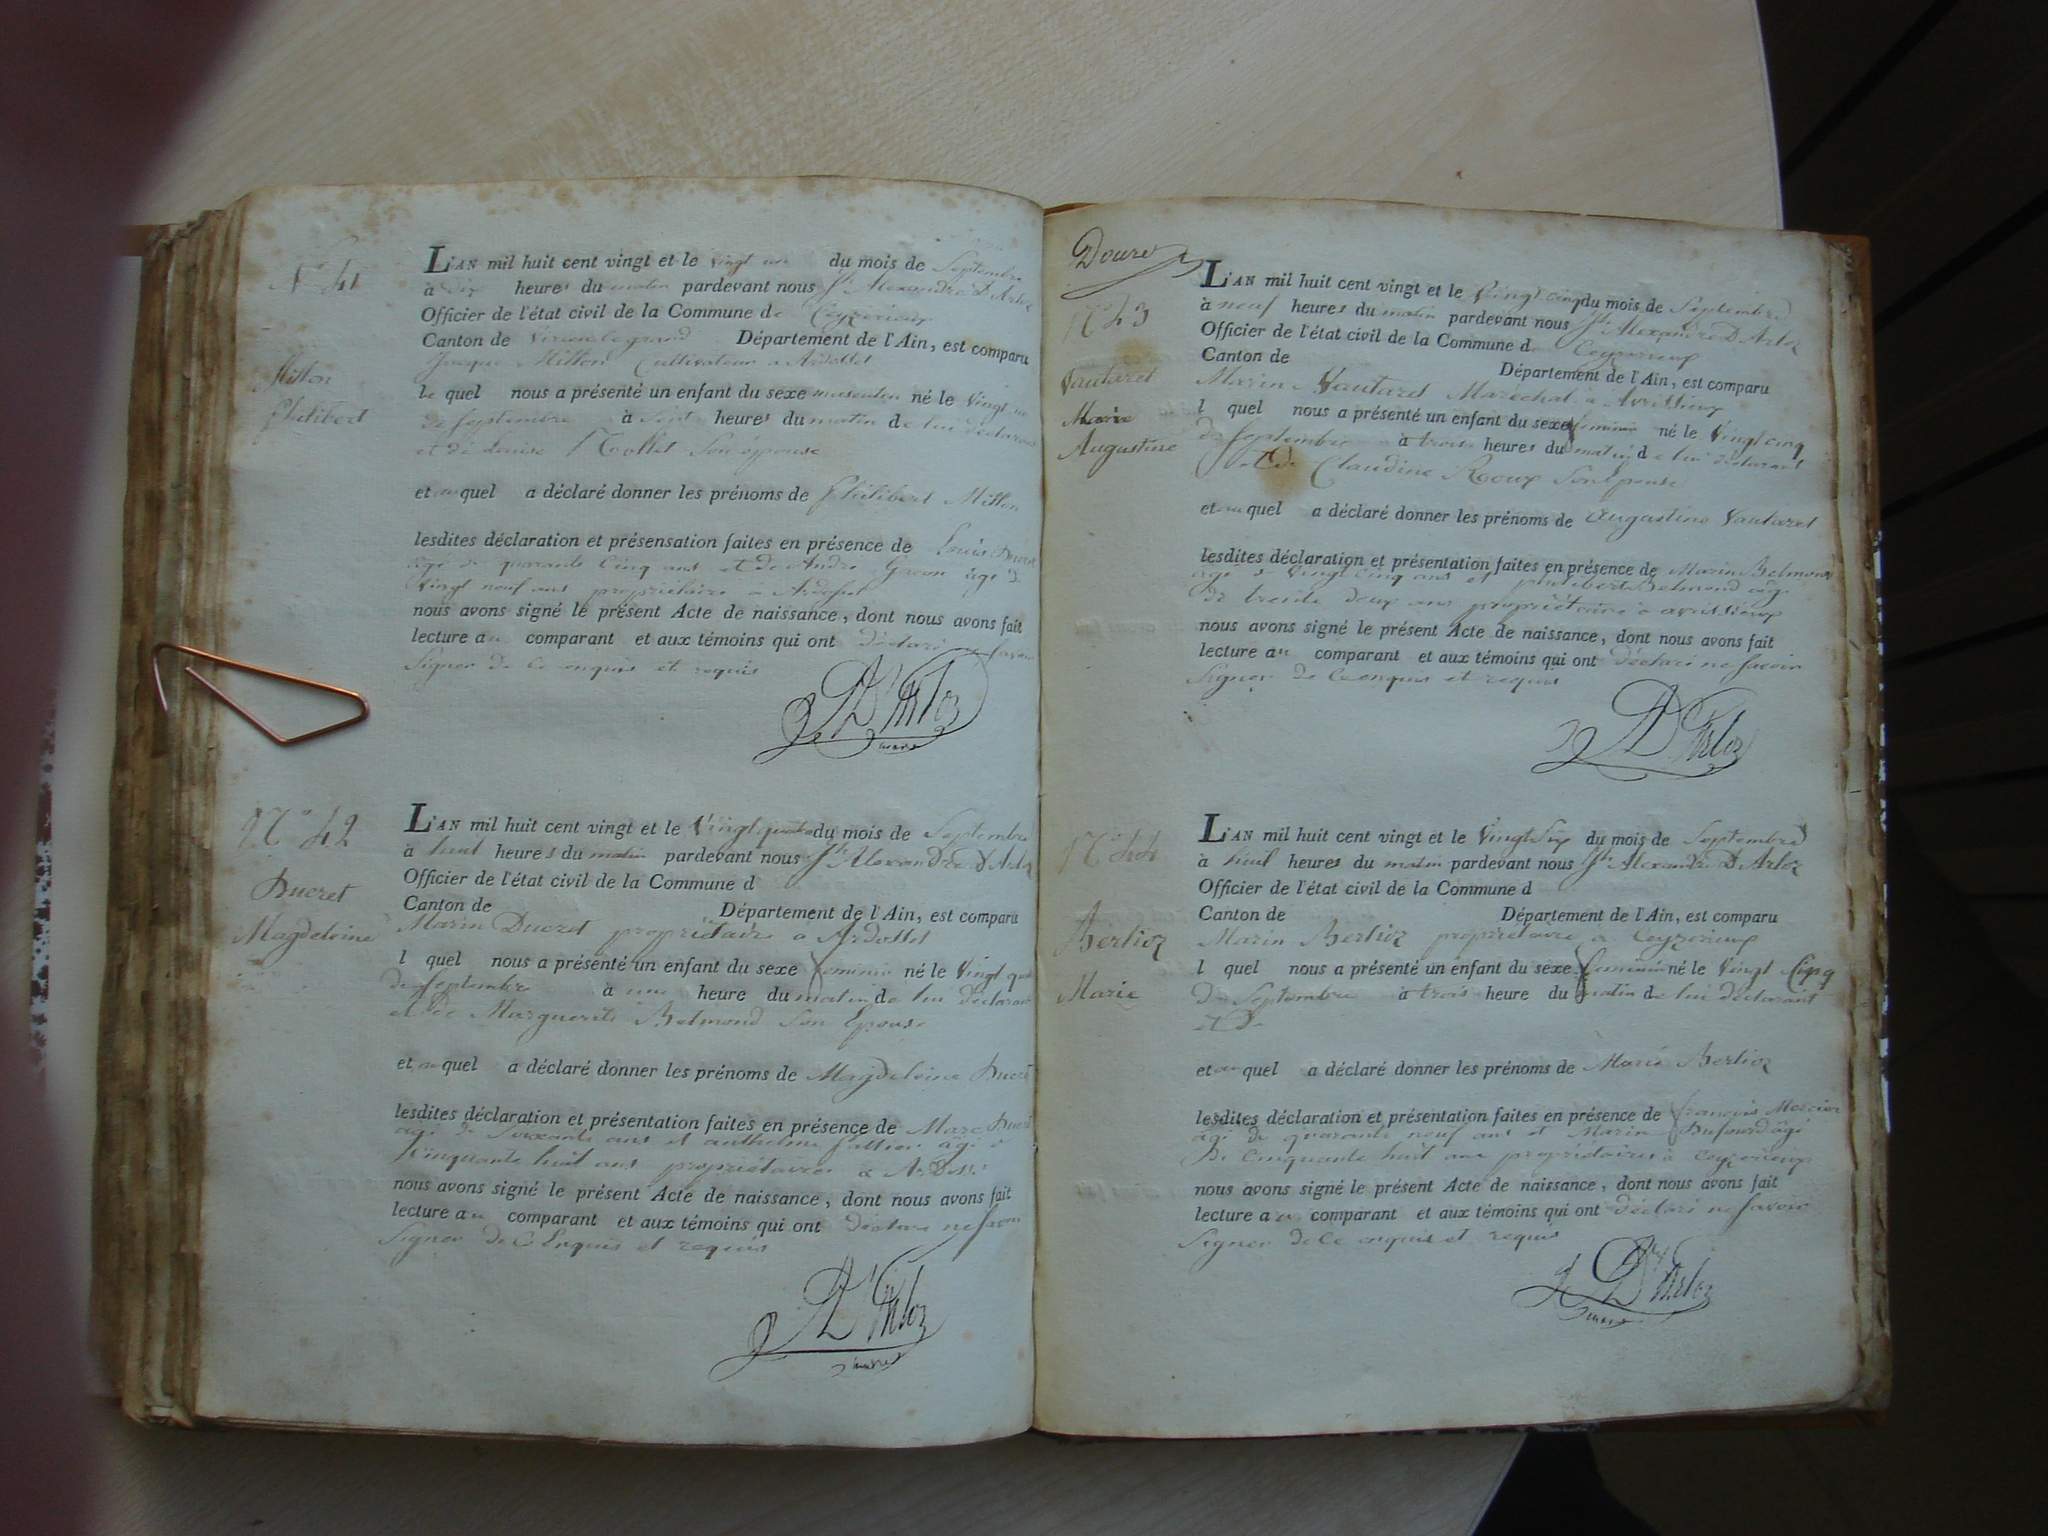 N° 41
Milton
Philibert
L'AN mil huit cent vingt et le vingt un du mois de Septembre
à dix heures du matin pardevant nous Jh Alexandre D'Arloz
Officier de l'état civil de la Commune de Ceyzerieux
Canton de Virieu le grand Département de l'Ain, est comparu
Jacque Millon Cultivateur a Ardosset
le quel nous a présenté un enfant du sexe masculin né le Vingt un
de Septembre à Sept heures du matin de lui déclarant
et de Louise Son épouse
et au quel a déclaré donner les prénoms de Philibert Millon
lesdites déclaration et présensation faites en présence de Louis Ducret
âgé de quarante Cinq ans et de André âgé de
Vingt neuf ans propriétaire a Ardosset
nous avons signé le présent Acte de naissance, dont nous avons fait
lecture au comparant et aux témoins qui ont déclaré ne savoir
Signer de Ce enquis et requis
D'Arloz
maire
N° 42
Ducret
Magdeleine
L'AN mil huit cent vingt et le Vingt quatre du mois de Septembre
à huit heures du matin pardevant nous Jh Alexandre D'Arloz
Officier de l'état civil de la Commune d
Canton de Département de l'Ain, est comparu
Marin Ducret propriétaire a Ardosset
l quel nous a présenté un enfant du sexe feminin né le Vingt quatre
de Septembre à une heure du matin de lui déclarant
et de Marguerite Belmond Son Epouse
et au quel a déclaré donner les prénoms de Magdeleine Ducret
lesdites déclaration et présentation faites en présence de Marc Ducret
âgé de Soixante ans et anthelme âgé de
Cinquante huit ans propriétaires a Ardosset
nous avons signé le présent Acte de naissance, dont nous avons fait
lecture au comparant et aux témoins qui ont déclaré ne savoir
Signer de Ce Enquis et requis
D'Arloz
maire
Douze
N° 43
Vautaret
Marie
Augustine
L'AN mil huit cent vingt et le Vingt cinq du mois de Septembre
à neuf heures du matin pardevant nous Jh Alexandre D'Arloz
Officier de l'état civil de la Commune d Ceyzerieux
Canton de Département de l'Ain, est comparu
Marin Vautaret Marechal a Avrissieux
l quel nous a présenté un enfant du sexe feminin né le Vingt cinq
de Septembre à trois heures du matin de lui déclarant
et de Claudine Roux Son Epouse
et au quel a déclaré donner les prénoms de Augustine Vautaret
lesdites déclaration et présentation faites en présence de Marin Belmond
âgé de Vingt Cinq ans et philibert Belmond âgé
de trente deux ans propriétaire a avrissieux
nous avons signé le présent Acte de naissance, dont nous avons fait
lecture au comparant et aux témoins qui ont déclaré ne savoir
Signer de Ce enquis et requis
D'Arloz
N° 44
Berlioz
Marie
L'AN mil huit cent vingt et le Vingt Six du mois de Septembre
à huit heures du matin pardevant nous Jh Alexandre D'Arloz
Officier de l'état civil de la Commune d
Canton de Département de l'Ain, est comparu
Marin Berlioz propriétaire à Ceyzerieux
l quel nous a présenté un enfant du sexe feminin né le Vingt Cinq
de Septembre à trois heure du matin de lui déclarant
et De
et au quel a déclaré donner les prénoms de Marie Berlioz
lesdites déclaration et présentation faites en présence de françois Mercier
âgé de quarante neuf ans et Marin Dufourd âgé
De Cinquante huit ans propriétaires à Ceyzerieux
nous avons signé le présent Acte de naissance, dont nous avons fait
lecture au comparant et aux témoins qui ont déclaré ne savoir
Signer de Ce enquis et requis
D'Arloz
maire